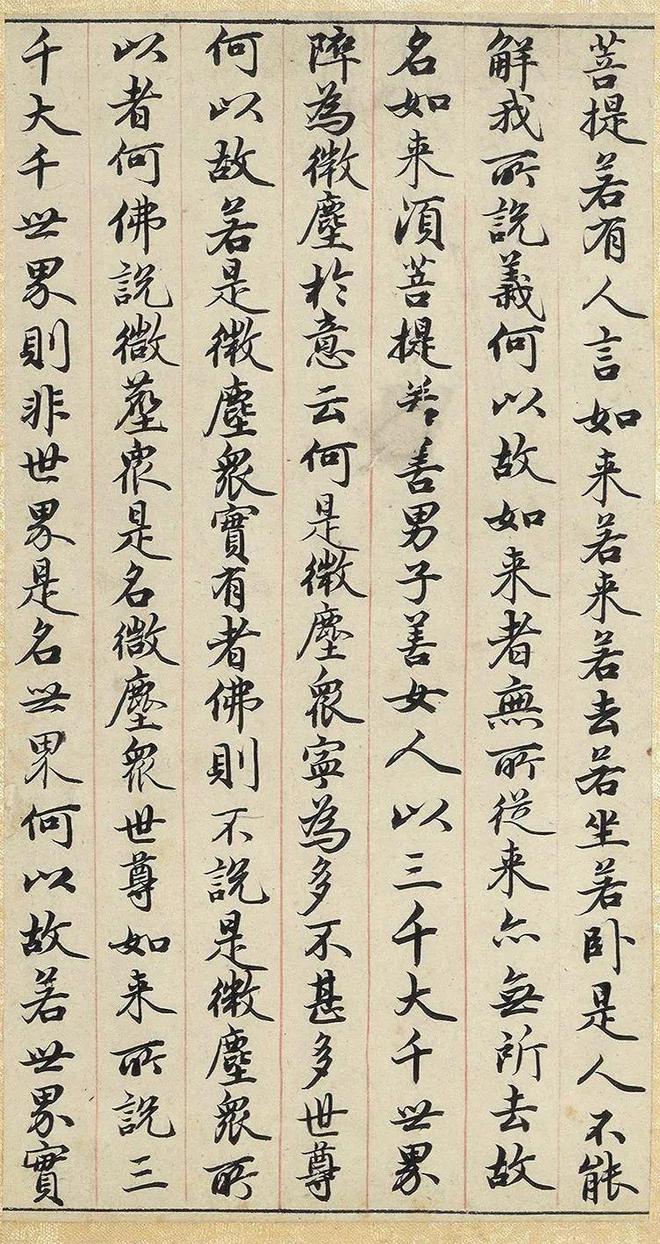 菩提若有人言如来若来若去若坐若卧是人不能
解我所說義何以故如来者無所從来亦無所去故
名如来須菩提若善男子善女人以三千大千世界
碎為微塵於意云何是微塵衆寧為多不甚多世尊
何以故若是微塵衆實有者佛則不說是微塵衆所
以者何佛說微塵衆是名微塵衆世尊如来所說三
千大千世界則非世界是名世界何以故若世界實